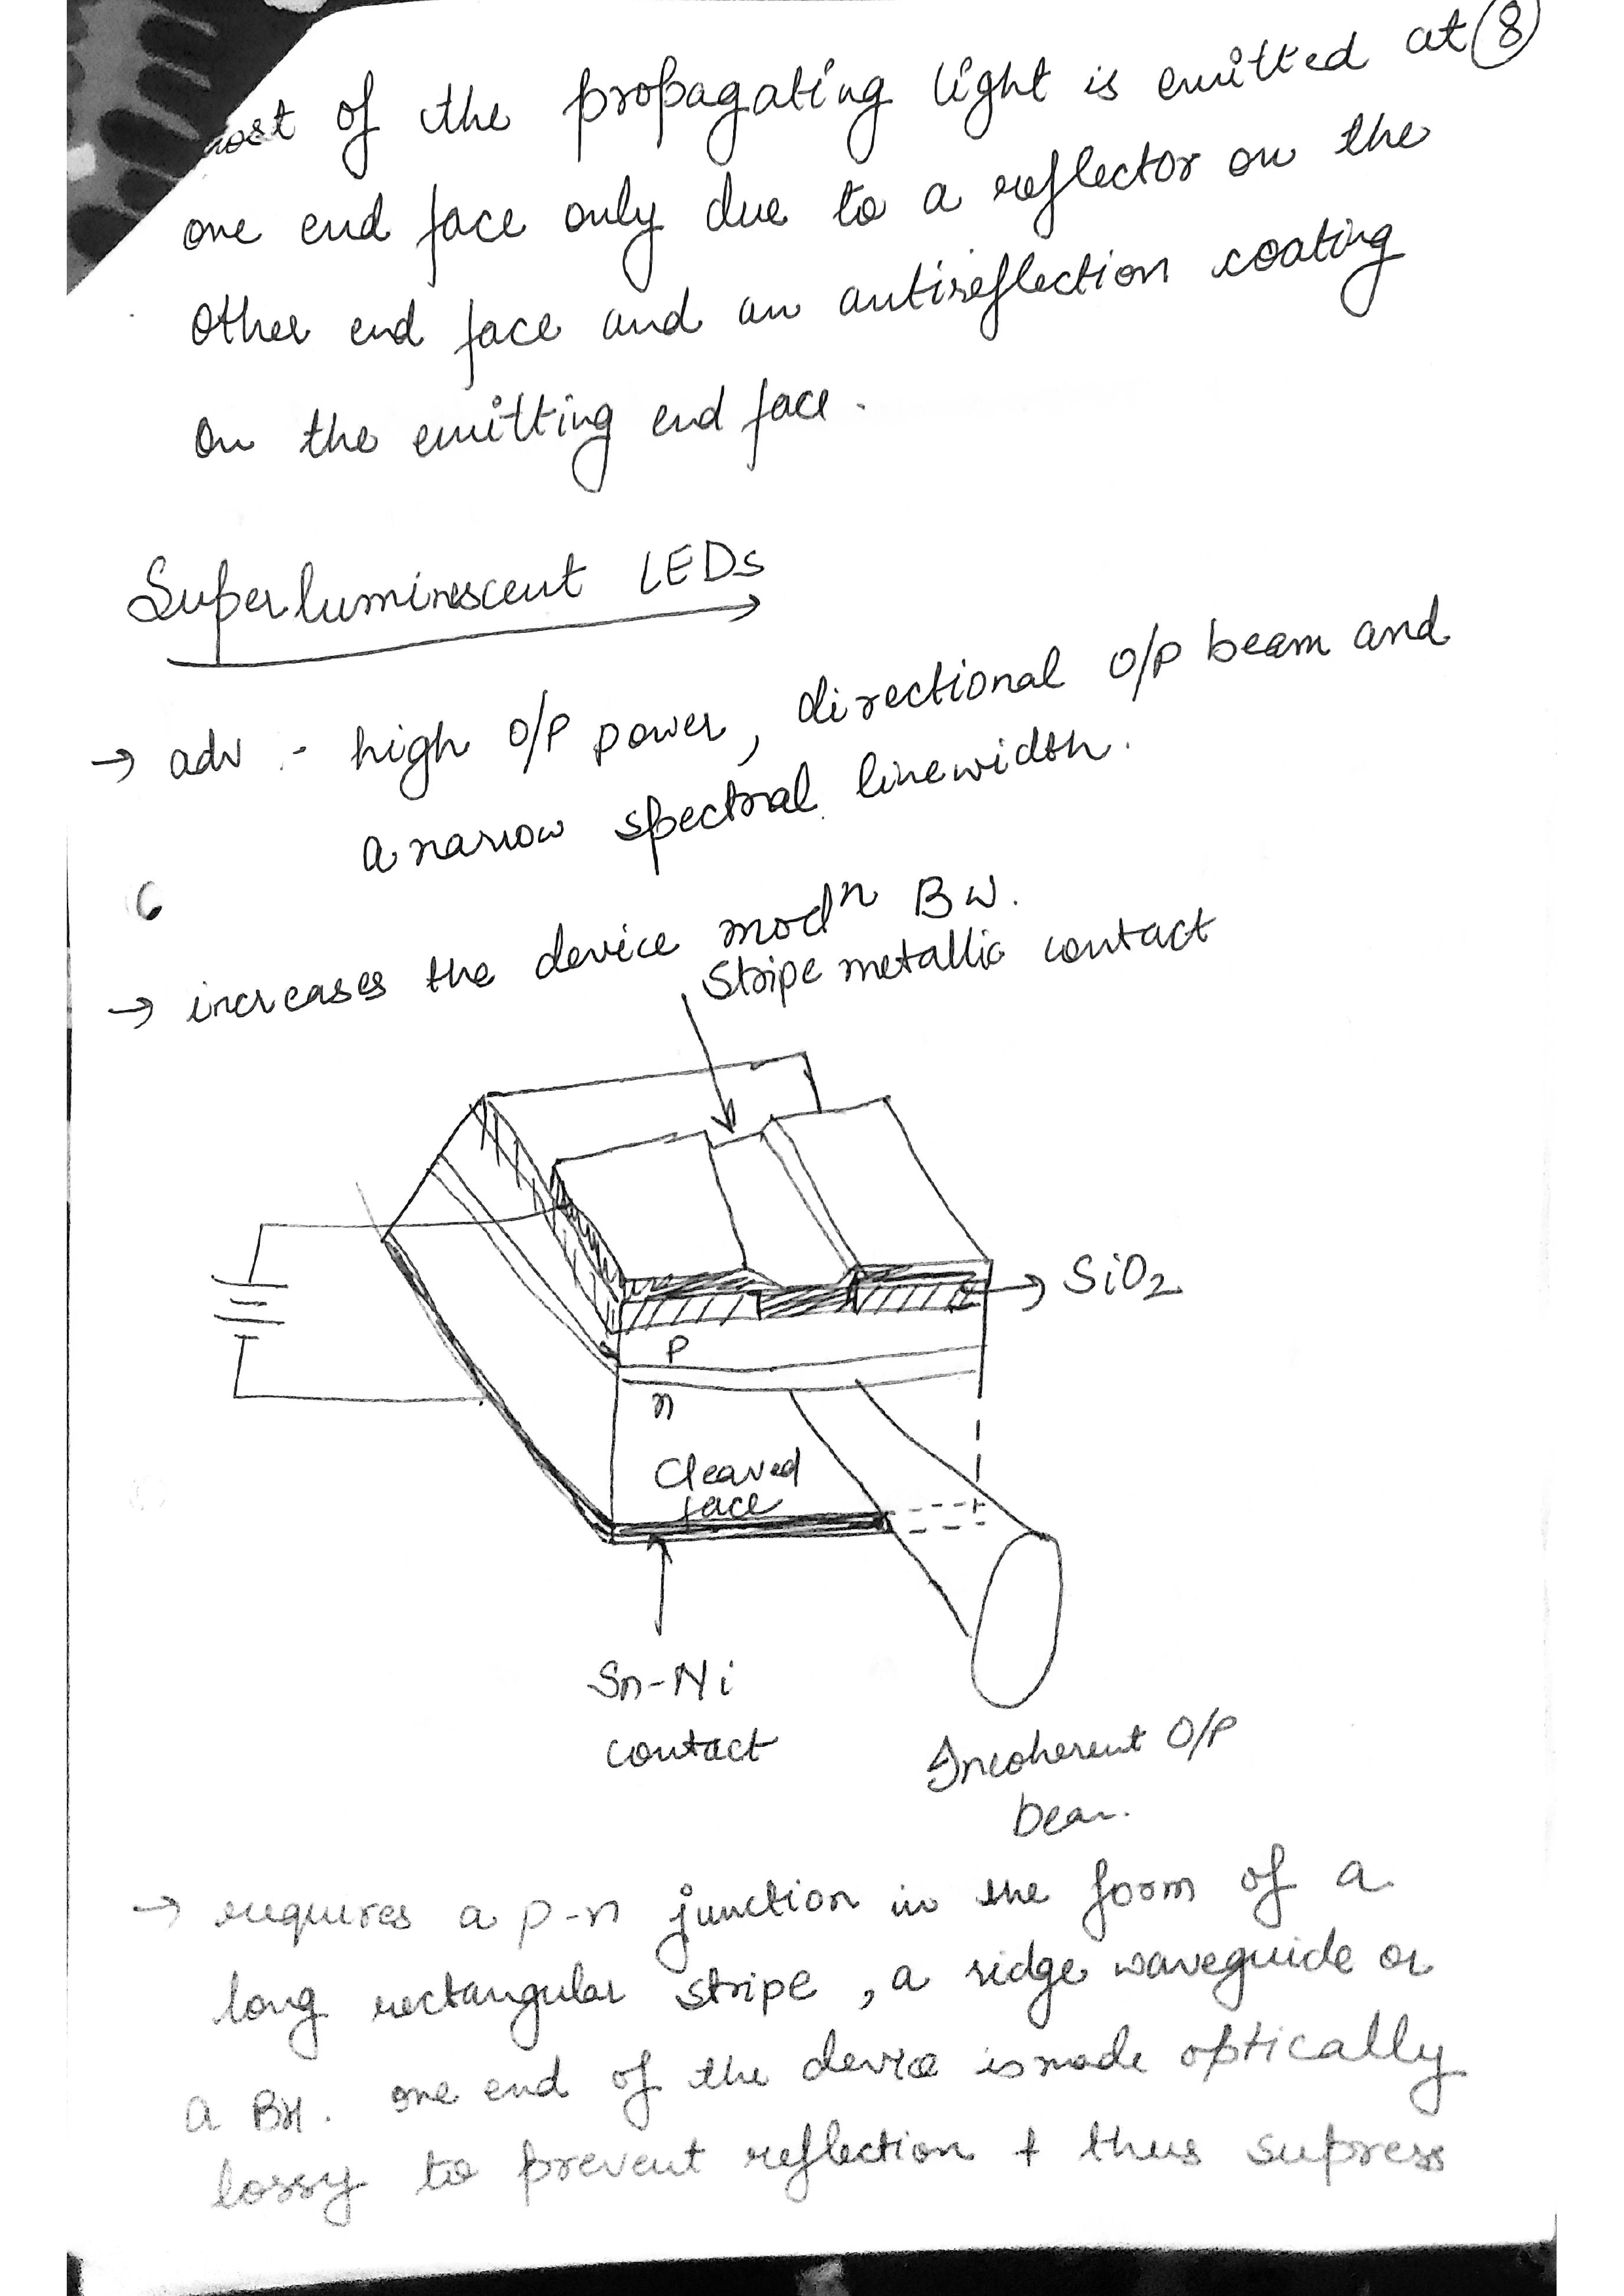 most of the propagating light is emitted at 8
one end face only due to a reflector on the
other end face and an antireflection coating
on the emitting end face.
Superluminescent LEDs
→ adv :- high O/P power, directional O/P beam and
a narrow spectral linewidth.
→ increases the device modⁿ BW.
Stripe metallic contact
SiO2
p
n
Cleaved
face
Sn-Ni
contact
Incoherent O/P
beam.
→ requires a p-n junction in the form of a
long rectangular stripe, a ridge waveguide or
a BH. one end of the device is made optically
lossy to prevent reflection + thus supress